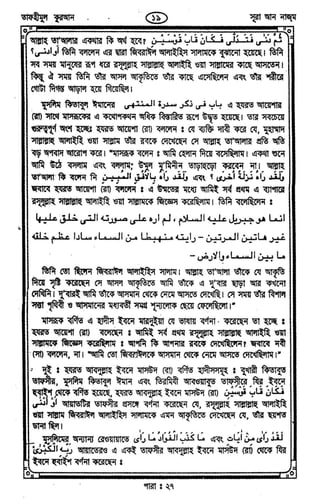 তাফহীমুল কুরআন ১৯ সূরা আন নাজম
ثُمَّ دَنَى فَتَدَلَّى فَكَانَ قَابَ قَوْسَيْنِ আল্লাহ তা'আলার একথার কি অর্থ হবে?
أَوْ أَدْنَى؟ তিনি বললেন এর দ্বারা জিবরাঈল আলাইহিস সালামকে বুঝানো হয়েছে। তিনি
সব সময় মানুষের রূপ ধরে রসূলুল্লাহ সাল্লাল্লাহু আলাইহি ওয়া সাল্লামের কাছে আসতেন।
কিন্তু ঐ সময় তিনি তাঁর আসল আকৃতিতে তাঁর কাছে এসেছিলেন এবং তাঁর শরীরে
গোটা দিগন্ত আড়াল হয়ে গিয়েছিল।
মুসলিম কিতাবুল ঈমানের باب فى ذكر سدرة المنتهى এ হযরত আয়েশার
(রা) সাথে মাসরূকের এ কথোপকথন অধিক বিস্তারিত রূপে উদ্ধৃত হয়েছে। তার সবচেয়ে
গুরুত্বপূর্ণ অংশ হচ্ছে : হযরত আয়েশা (রা) বললেন : যে ব্যক্তি দাবী করে যে, মুহাম্মাদ
সাল্লাল্লাহু আলাইহি ওয়া সাল্লাম তাঁর রবকে দেখেছেন সে আল্লাহ তা'আলার প্রতি অতি
বড় অপবাদ আরোপ করে। "মাসরূক বলেন : আমি হেলান দিয়ে বসেছিলাম। একথা শুনে
আমি উঠে বসলাম এবং বললাম : উম্মুল মু'মিনীন তাড়াহুড়ো করবেন না। আল্লাহ
তা'আলা কি বলেন নি وَلَقَدْ رَآهُ بِالْأُفُقِ الْمُبِينِ এবং وَلَقَدْ رَآهُ نَزْلَةً أُخْرَى؟
জবাবে হযরত আয়েশা (রা) বললেন : এ উম্মতের মধ্যে আমিই সর্ব প্রথম এ ব্যাপারে
রসূলুল্লাহ সাল্লাল্লাহু আলাইহি ওয়া সাল্লামকে জিজ্ঞেস করেছিলাম। তিনি বলেছিলেন :
انما هو جبريل عليه السلام، لم اره على صورته التى خلق عليها
غير هاتين المرتين - رايته منهبطا من السماء سادا عظم خلقه
ما بين السماء والارض -
তিনি তো ছিলেন জিবরাঈল আলাইহিস সালাম। আল্লাহ তা'আলা তাঁকে যে আকৃতি
দিয়ে সৃষ্টি করেছেন সে আসল আকৃতিতে আমি তাঁকে এ দু'বার ছাড়া আর কখনো
দেখিনি। দু'বারই আমি তাঁকে আসমান থেকে নেমে আসতে দেখেছি। সে সময় তাঁর বিশাল
সত্তা পৃথিবী ও আসমানের মধ্যবর্তী সমগ্র শূন্যলোক ছেয়ে ফেলেছিলো।"
মাসরূক বর্ণিত এ হাদীস ইবনে মারদুইয়া যে ভাষায় বর্ণনা করেছেন তা হচ্ছে :
হযরত আয়েশা (রা) বললেন : আমিই সর্ব প্রথম রসূলুল্লাহ সাল্লাল্লাহু আলাইহি ওয়া
সাল্লামকে জিজ্ঞেস করেছিলাম : আপনি কি আপনার রবকে দেখেছিলেন? জবাবে নবী
(সা) বললেন, না। "আমি তো জিবরাঈলকে আসমান থেকে নেমে আসতে দেখেছিলাম।"
দুই : হযরত আবদুল্লাহ ইবনে মাসউদ (রা) বর্ণিত হাদীসসমূহ : বুখারী কিতাবুত
তাফসীর, মুসলিম কিতাবুল ঈমান এবং তিরমিযী আবওয়াবুত তাফসীরে যির ইবনে
হুবাইশ থেকে বর্ণিত হয়েছে, হযরত আবদুল্লাহ ইবনে মাসউদ (রা) فَكَانَ قَابَ قَوْسَيْنِ
أَوْ أَدْنَى আয়াতটির তাফসীর প্রসঙ্গে বর্ণনা করেছেন যে, রসূলুল্লাহ সাল্লাল্লাহু আলাইহি
ওয়া সাল্লাম জিবরাঈল আলাইহিস সালামকে এমন আকৃতিতে দেখেছেন যে, তাঁর ছয়শত
ডানা ছিল।
মুসলিমের অন্যান্য রেওয়ায়াতে مَا كَذَبَ الْفُؤَادُ مَا رَأَى এবং لَقَدْ رَأَى مِنْ آيَاتِ
رَبِّهِ الْكُبْرَى আয়াতেরও এ একই তাফসীর আবদুল্লাহ ইবনে মাসউদ (রা) থেকে যির
ইবনে হুবাইশ বর্ণনা করেছেন :
পারা : ২৭